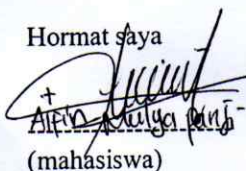 Hormat saya
Alfin Mulya panji
(mahasiswa)